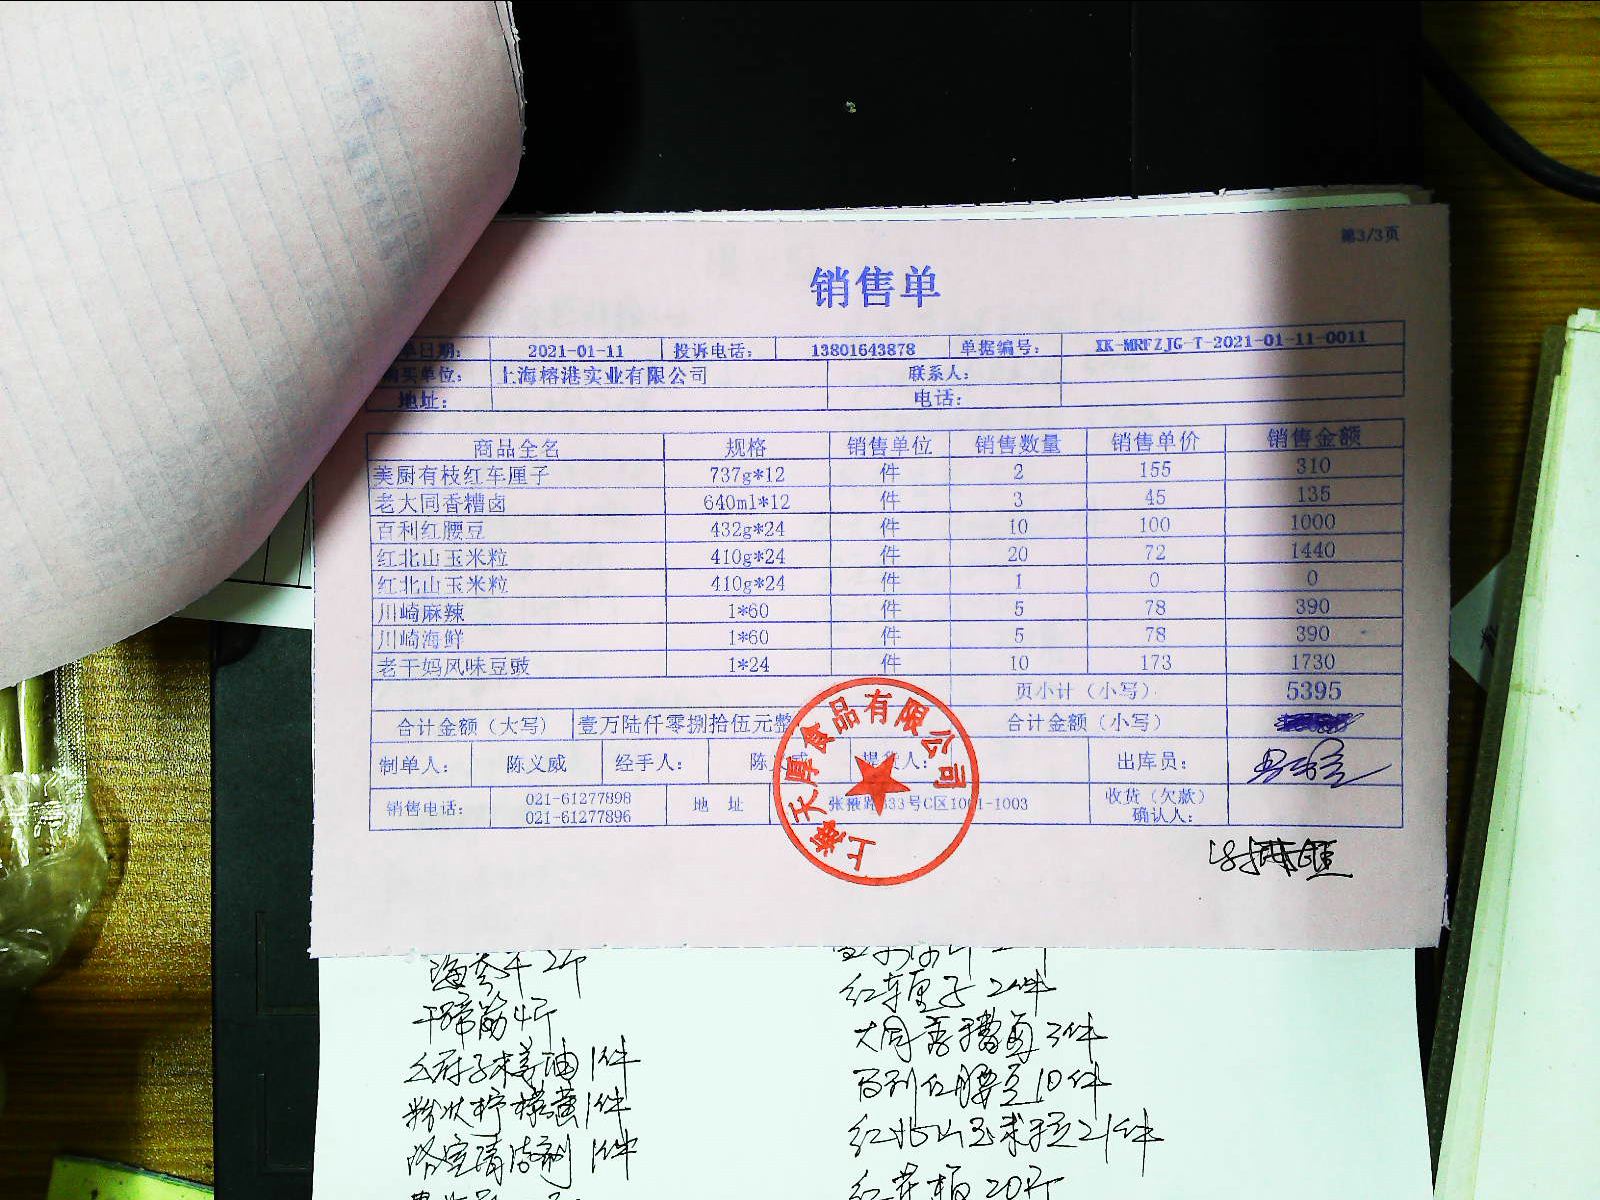 第3/3页
销售单
单日期: 2021-01-11 投诉电话: 13801643878 单据编号: XK-MRFZJG-T-2021-01-11-0011
购买单位: 上海榕港实业有限公司 联系人:
地址: 电话:
商品全名 规格 销售单位 销售数量 销售单价 销售金额
美厨有枝红车厘子 737g*12 件 2 155 310
老大同香糟卤 640ml*12 件 3 45 135
百利红腰豆 432g*24 件 10 100 1000
红北山玉米粒 410g*24 件 20 72 1440
红北山玉米粒 410g*24 件 1 0 0
川崎麻辣 1*60 件 5 78 390
川崎海鲜 1*60 件 5 78 390
老干妈风味豆豉 1*24 件 10 173 1730
页小计（小写） 5395
合计金额（大写） 壹万陆仟零捌拾伍元整 合计金额（小写）
制单人: 陈义威 经手人: 陈义威 提货人: 出库员:
销售电话: 021-61277898 地 址 张掖路633号C区1001-1003 收货（欠款）
021-61277896 确认人:
上海天厚食品有限公司
干蹄筋4斤
红车厘子 2件
大同香糟卤 3件
百利红腰豆 10件
红北山玉米粒 21件
粉状柠檬黄 1件